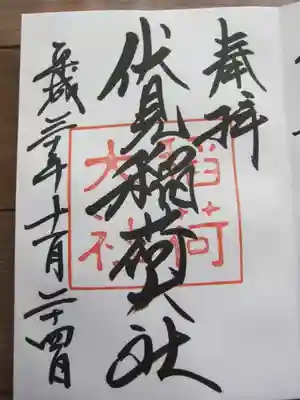 奉拝
伏見稲荷大社
稲荷
大社
平成三十年十一月二十四日